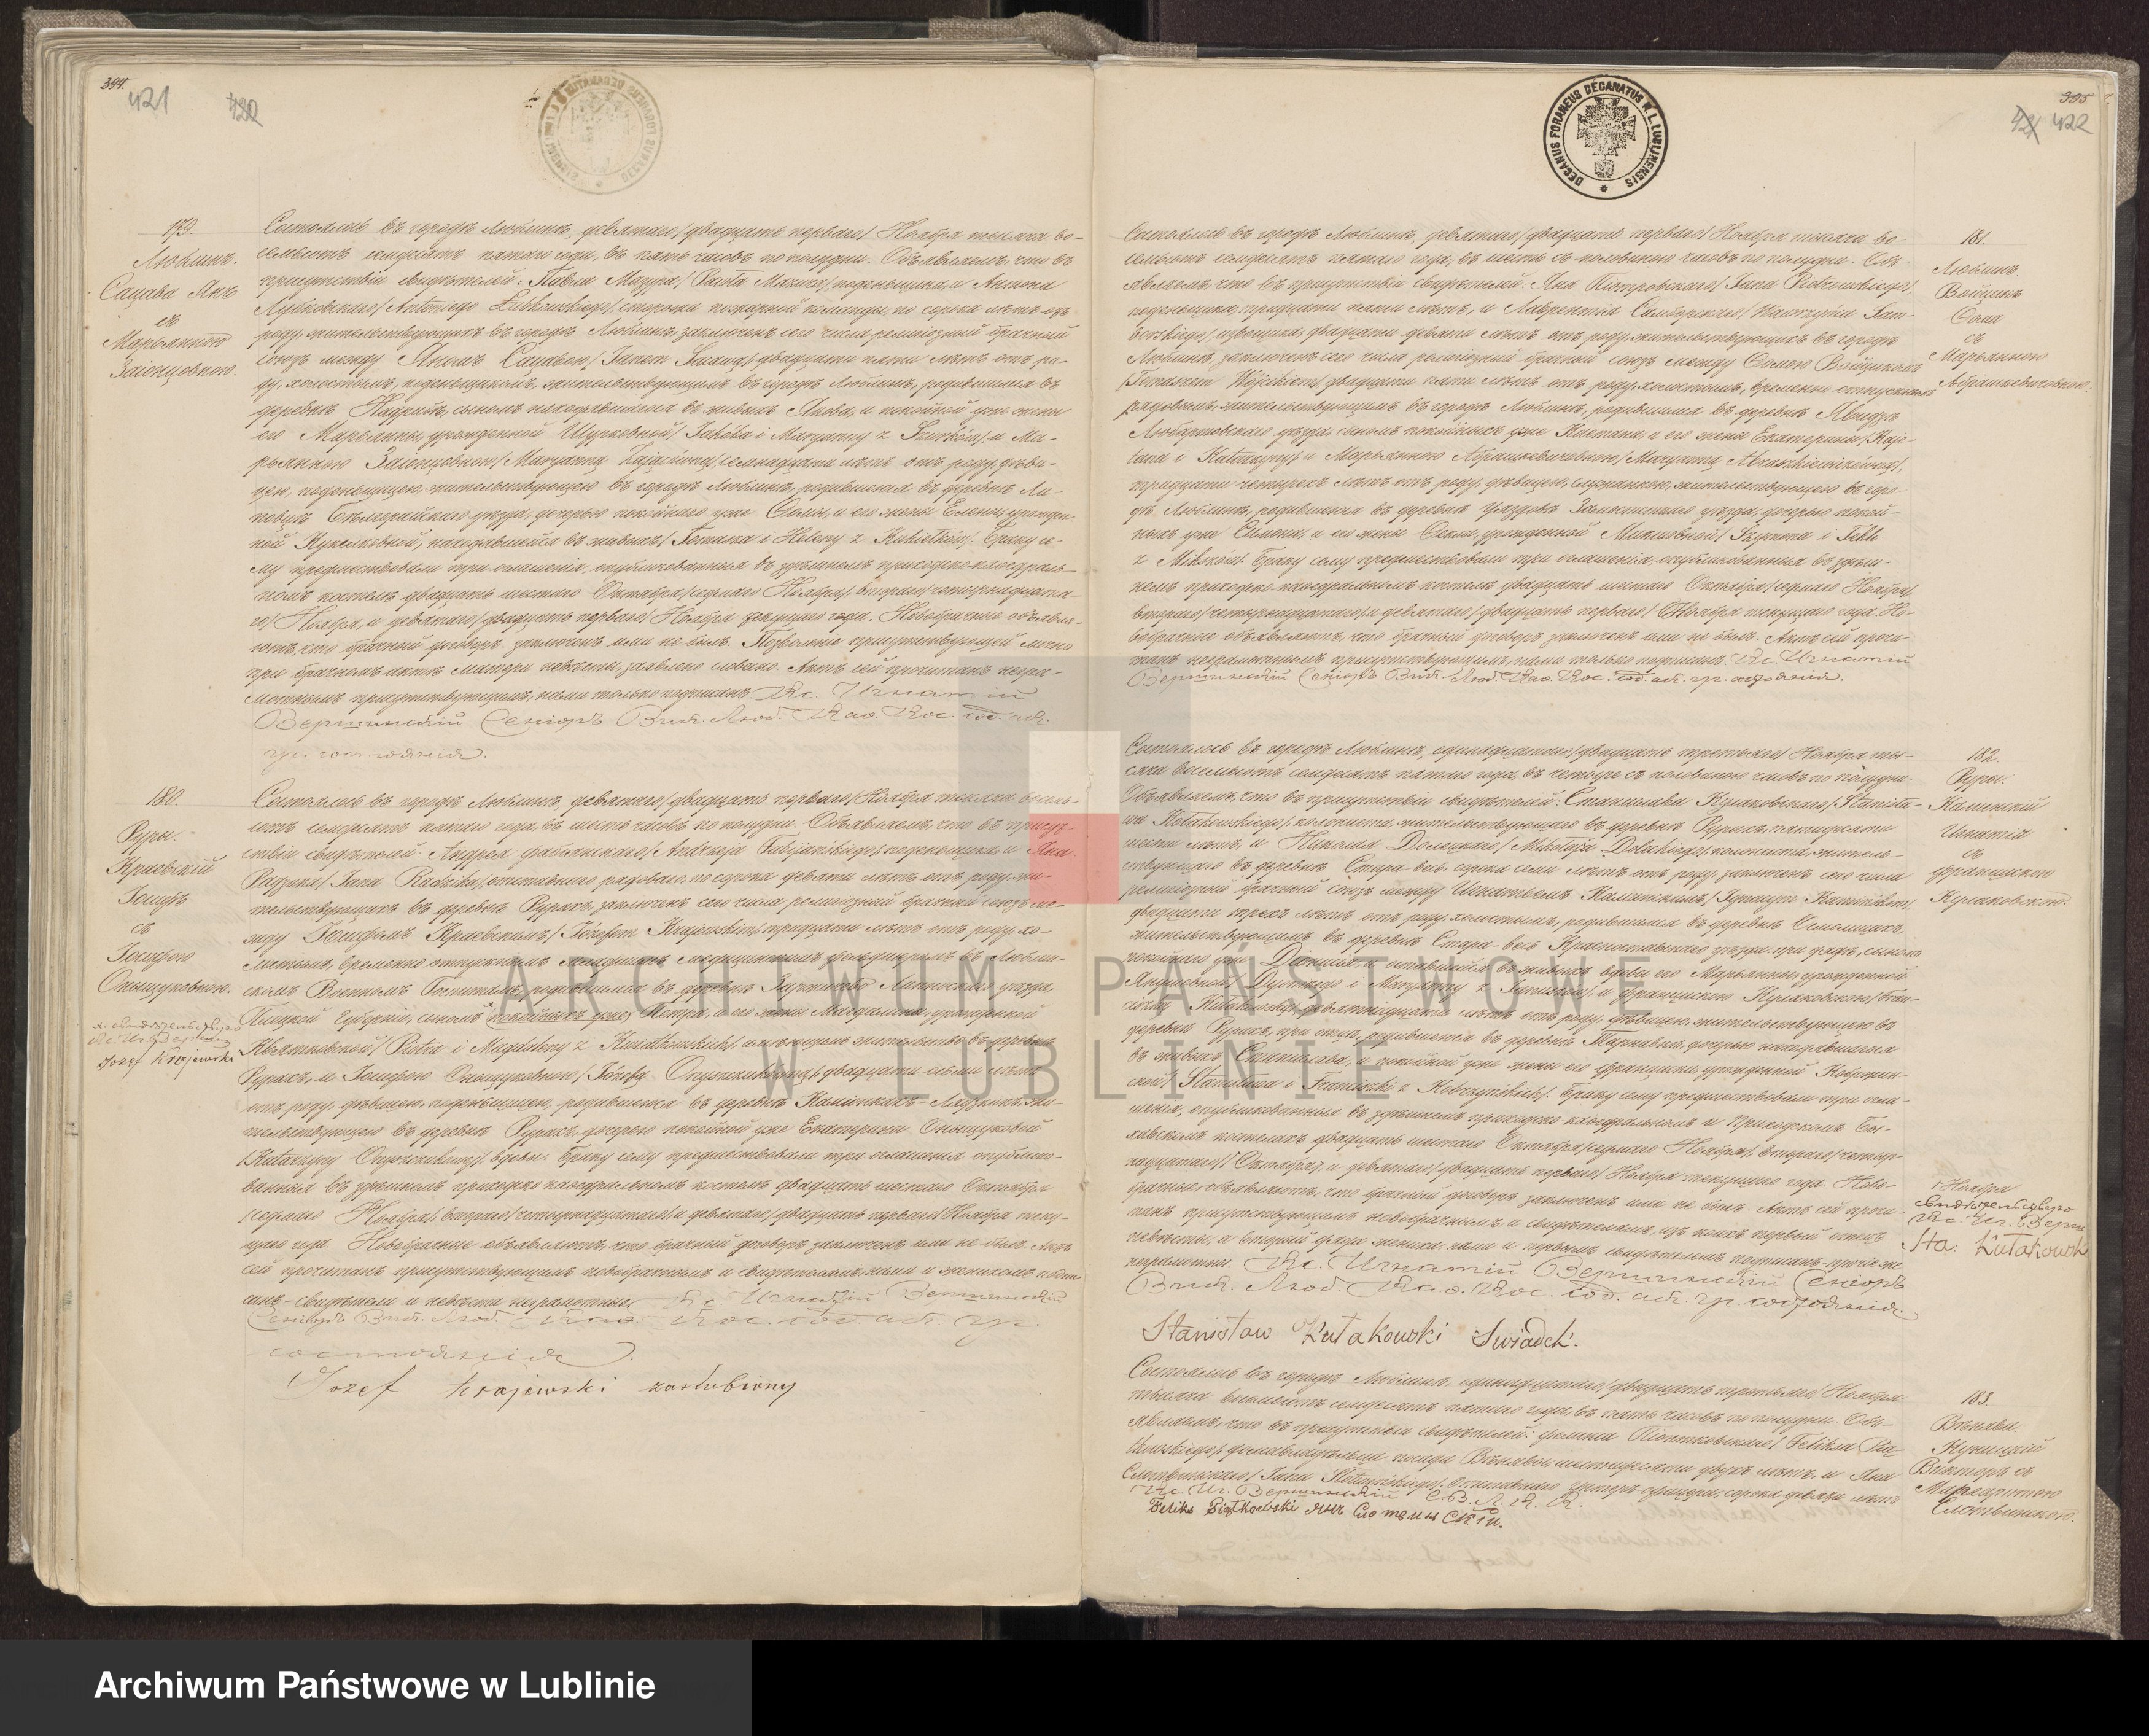 394.
421
420
179.
Люблинъ.
Сацава Янъ
съ
Марьянною
Заіонцовною.
Состоялось въ городѣ Люблинѣ, девятаго /двадцать перваго/ Ноября тысяча во-
семьсотъ семдесятъ пятаго года, въ пять часовъ по полудни. Объявляемъ, что въ
присутствіи свидѣтелей: Павла Мазура /Pawła Mazura/ поденьщика, и Антона
Лубковскаго /Antoniego Łubkowskiego/, сторожа пожарной команды, по сорока лѣтъ отъ
роду, жительствующихъ въ городѣ Люблинѣ, заключенъ сего числа религіозный брачный
союзъ между Яномъ Сацавою /Janem Sacawą/, двадцати пяти лѣтъ отъ ро-
ду, холостымъ, поденьщикомъ, жительствующимъ въ городѣ Люблинѣ, родившимся въ
деревнѣ сыномъ находявшагося въ живыхъ и покойной уже жены
его Марьянны, урожденной /Jakóba i Maryanny z и Ма-
рьянною Заіонцовною /Maryanną Zającówną/, семнадцати лѣтъ отъ роду, дѣви-
цею, поденьщицею, жительствующею въ городѣ Люблинѣ, родившеюся въ деревнѣ Ли-
повцѣ Бѣлгорайскаго уѣзда, дочерью покойнаго уже Ѳомы, и его жены Елены, урожден-
ной находявшейся въ живыхъ /Tomasza i Heleny z Браку се-
му предшествовали три оглашенія, опубликованныя въ здѣшнемъ приходско-каѳедраль-
номъ костелѣ двадцать шестаго Октября /седьмаго Ноября/, втораго /четырнадцата-
го/ Ноября, и девятаго /двадцать перваго/ Ноября текущаго года. Новобрачные объявля-
ютъ, что брачный договоръ заключенъ ими не былъ. Позволеніе присутствующей лично
при брачномъ актѣ матери невѣсты, заявлено словесно. Актъ сей прочитанъ негра-
мотнымъ присутствующимъ, нами только подписанъ. Кс. Игнатій
Вершинскій Сеніоръ Вик. Люб. Каѳ. Кос. сод. акт.
гр. состоянія.
180.
Руры.
Краевскій
Іосифъ
съ
Іосифою
Онышуковною.
Jozef Krajewski
Состоялось въ городѣ Люблинѣ, девятаго /двадцать перваго/ Ноября тысяча восемь-
сотъ семдесятъ пятаго года, въ шесть часовъ по полудни. Объявляемъ, что въ присут-
ствіи свидѣтелей: Андрея Фабіянскаго /Andrzeja Fabijańskiego/, поденьщика, и Яна
Радзика /Jana Radzika/, отставнаго рядоваго, по сорока девяти лѣтъ отъ роду, жи-
тельствующихъ въ деревнѣ Рурахъ, заключенъ сего числа религіозный брачный союзъ ме-
жду Іосифомъ Краевскимъ /Józefem Krajewskim/, тридцати лѣтъ отъ роду, хо-
лостымъ, временно отпускнымъ медицинскимъ фельдшеромъ въ Люблин-
скомъ Военномъ Госпиталѣ, родившимся въ деревнѣ уѣзда,
Плоцкой Губерніи, сыномъ покойныхъ уже Петра, и его жены Магдалины, урожденной
Квятковской /Piotra i Magdaleny z Kwiatkowskich/, имѣющимъ жительство въ деревнѣ
Рурахъ, и Іосифою Онышуковною /Józefą двадцати семи лѣтъ
отъ роду, дѣвицею, поденьщицею, родившеюся въ деревнѣ жи-
тельствующею въ деревнѣ Рурахъ, дочерью покойной уже Екатерины Онышуковой
/Katarzyny вдовы. Браку сему предшествовали три оглашенія опублико-
ванныя въ здѣшнемъ приходско каѳедральномъ костелѣ двадцать шестаго Октября
/седьмаго Ноября/, втораго /четырнадцатаго/ и девятаго /двадцать перваго/ Ноября теку-
щаго года. Новобрачные объявляютъ, что брачный договоръ заключенъ ими не былъ. Актъ
сей прочитанъ присутствующимъ новобрачнымъ и свидѣтелямъ, нами и женихомъ подпи-
санъ — свидѣтели и невѣста неграмотные. Кс. Игнатій Вершинскій
Сеніоръ Вик. Люб. Каѳ. Кос. сод. акт. гр.
состоянія.
Jozef Krajewski zaslubiony
DECANUS FORANEUS DECANATUS R. L. LUBLINENSIS
395
421 422
181.
Люблинъ.
Войцикъ
Ѳома
съ
Марьянною
Абрашкевичовною.
Состоялось въ городѣ Люблинѣ, девятаго /двадцать перваго/ Ноября тысяча во-
семьсотъ семдесятъ пятаго года, въ шесть съ половиною часовъ по полудни. Объ-
являемъ, что въ присутствіи свидѣтелей: Яна Піотровскаго /Jana Piotrowskiego/,
поденьщика, тридцати пяти лѣтъ, и Лаврентія Самборскаго /Wawrzyńca Sam-
borskiego/, извощика, двадцати девяти лѣтъ отъ роду, жительствующихъ въ городѣ
Люблинѣ, заключенъ сего числа религіозный брачный союзъ между Ѳомою Войцикомъ
/Tomaszem Wójcikiem/, двадцати пяти лѣтъ отъ роду, холостымъ, временно отпускнымъ
рядовымъ, жительствующимъ въ городѣ Люблинѣ, родившимся въ деревнѣ
Любартовскаго уѣзда, сыномъ покойныхъ уже Каетана, и его жены Екатерины /Kaje-
tana i Katarzyny/, и Марьянною Абрашкевичовною /Maryanną Abraszkiewiczówną/,
тридцати четырехъ лѣтъ отъ роду, дѣвицею, служанкою, жительствующею въ горо-
дѣ Люблинѣ, родившеюся въ деревнѣ Уяздовѣ Замостскаго уѣзда, дочерью покой-
ныхъ уже Симона, и его жены Ѳеклы, урожденной /Szymona i Tekli
z Браку сему предшествовали три оглашенія, опубликованныя въ здѣш-
немъ приходско каѳедральномъ костелѣ двадцать шестаго Октября /седьмаго Ноября/,
втораго /четырнадцатаго/, и девятаго /двадцать перваго/ Ноября текущаго года. Но-
вобрачные объявляютъ, что брачный договоръ заключенъ ими не былъ. Актъ сей прочи-
танъ неграмотнымъ присутствующимъ, нами только подписанъ. Кс. Игнатій
Вершинскій Сеніоръ Вик. Люб. Каѳ. Кос. сод. акт. гр. состоянія.
182.
Руры.
Калинскій
Игнатій
съ
Францискою
Кулаковскою.
Состоялось въ городѣ Люблинѣ, одинадцатаго /двадцать третьяго/ Ноября ты-
сяча восемьсотъ семдесятъ пятаго года, въ четыре съ половиною часовъ по полудни.
Объявляемъ, что въ присутствіи свидѣтелей: Станислава Кулаковскаго /Stanisła-
wa Kułakowskiego/, колониста, жительствующаго въ деревнѣ Рурахъ, пятидесяти
шести лѣтъ, и Николая Долецкаго /Mikołaja колониста, житель-
ствующаго въ деревнѣ Стара-весь, сорока семи лѣтъ отъ роду, заключенъ сего числа
религіозный брачный союзъ между Игнатіемъ Калинскимъ /Ignacym
двадцати трехъ лѣтъ отъ роду, холостымъ, родившимся въ деревнѣ
жительствующимъ въ деревнѣ Стара-весь Красноставскаго уѣзда, при дядѣ, сыномъ
покойнаго уже и оставшейся въ живыхъ вдовы его Марьянны, урожденной
i Maryanny z и Францискою Кулаковскою /Fran-
ciszką Kułakowską/, девятнадцати лѣтъ отъ роду, дѣвицею, жительствующею въ
деревнѣ Рурахъ, при отцѣ, родившеюся въ деревнѣ дочерью находявшагося
въ живыхъ Станислава, и покойной уже жены его Франциски, урожденной Кобржин-
ской /Stanisława i Franciszki z Kobrzyńskich/. Браку сему предшествовали три огла-
шенія, опубликованныя въ здѣшнемъ приходско каѳедральномъ и Приходскомъ Бы-
хавскомъ костелахъ двадцать шестаго Октября /седьмаго Ноября/, втораго /четыр-
надцатаго/ Октября, и девятаго /двадцать перваго/ Ноября текущаго года. Ново-
брачные объявляютъ, что брачный договоръ заключенъ ими не былъ. Актъ сей прочи-
танъ присутствующимъ новобрачнымъ и свидѣтелямъ, изъ коихъ первый отецъ
невѣсты, а второй дядя жениха, нами и первымъ свидѣтелемъ подписанъ, прочіе не
грамотны. Кс. Игнатій Вершинскій Сеніоръ
Вик. Люб. Каѳ. Кос. сод. акт. гр. состоянія.
Ноября
свидѣтельствую
Кс. Иг. Верш.
Sta. Kułakowski
Stanisław Kułakowski Swiadek.
183.
Вѣнява.
Куницкій
Викторъ съ
Маргаритою
Слотвинскою.
Состоялось въ городѣ Люблинѣ, одинадцатаго /двадцать третьяго/ Ноября
тысяча восемьсотъ семдесятъ пятаго года, въ пять часовъ по полудни. Объ-
являемъ, что въ присутствіи свидѣтелей: Феликса Піонтковскаго /Feliksa Pią-
tkowskiego/, домовладѣльца посада Вѣнява, шестидесяти двухъ лѣтъ, и Яна
Слотвинскаго /Jana Słotwińskiego/, отставнаго унтеръ офицера, сорока девяти лѣтъ
Кс. Иг. Вершинскій С. В. Л. К. К.
Feliks Piątkowski Янъ Слотвинскій.
ARCHIWUM PAŃSTWOWE
W LUBLINIE
Archiwum Państwowe w Lublinie